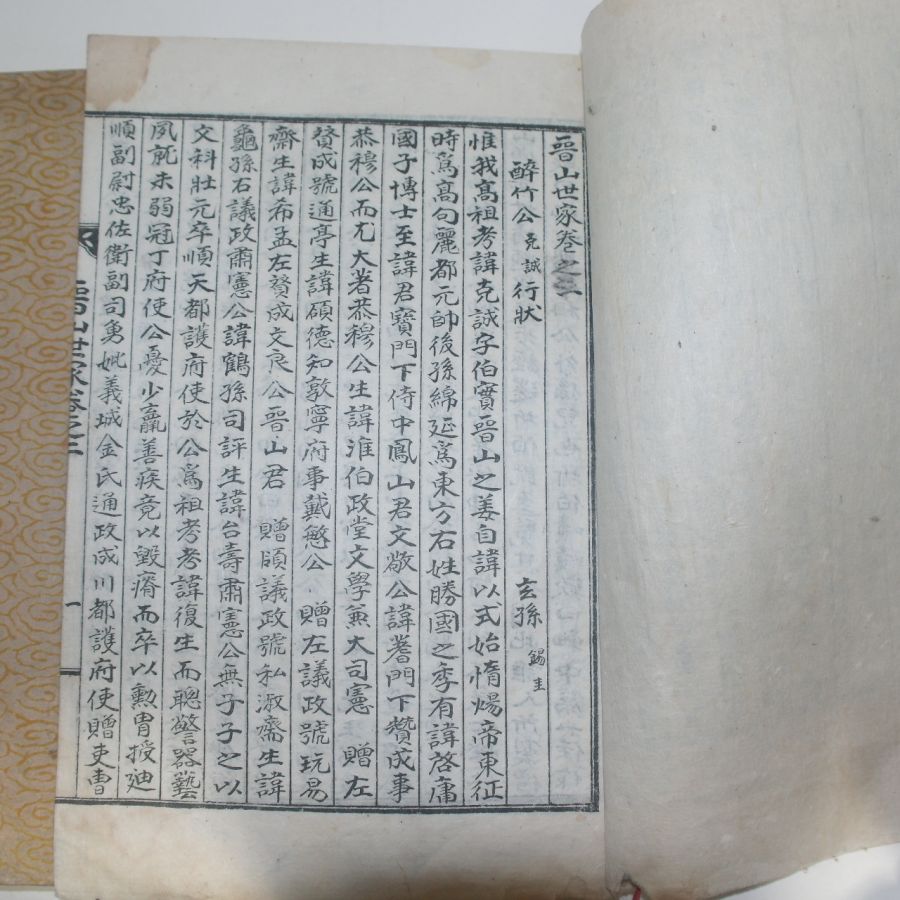 晉山世家卷之三
醉竹公克誠行狀
玄孫錫圭
惟我高祖考諱克誠字伯實晉山之姜自諱以式始惰煬帝東征
時爲高句麗都元帥後孫綿延爲東方右姓勝國之季有諱啓庸
國子博士至諱君寶門下侍中鳳山君文敬公諱蓍門下贊成事
恭穆公而尤大著恭穆公生諱淮伯政堂文學兼大司憲 贈左
贊成號通亭生諱碩德知敦寧府事戴愍公 贈左議政號玩易
齋生諱希孟左贊成文良公晉山君 贈領議政號私淑齋生諱
龜孫右議政肅憲公諱鶴孫司評生諱台壽肅憲公無子子之以
文科壯元卒順天都護府使於公爲祖考考諱復生而聰警器藝
夙就未弱冠丁府使公憂少羸善疾竟以毀瘠而卒以勳冑授迪
順副尉忠佐衛副司勇妣義城金氏通政成川都護府使贈吏曹
晉山世家卷之三
一